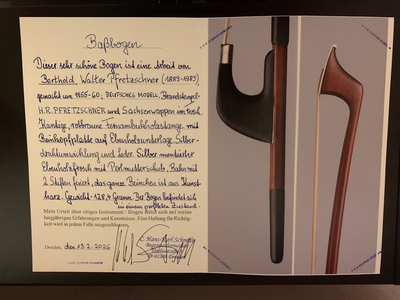 Baßbogen
Dieser sehr schöne Bogen ist eine Arbeit von
Berthold Walter Pfretzschner (1889-1983)
gemacht um 1955-60, DEUTSCHES MODELL, Brandstempel-
H.R. PFRETZSCHNER und Sachsenwappen im Frosch.
Kantige, rotbraune Fernambukholzstange mit
Beinkopfplatte auf Ebenholzunterlage. Silber-
drahtumwicklung und Leder. Silber montierter
Ebenholzfrosch mit Perlmutterschub, Bahn mit
2 Stiften fixiert, das ganze Beinchen ist aus Kunst-
harz. Gewicht: 128,4 Gramm. Der Bogen befindet sich
in einem perfekten Zustand.
Mein Urteil über obiges Instrument / Bogen stützt sich auf meine
langjährigen Erfahrungen und Kenntnisse. Eine Haftung für Richtig-
keit wird in jedem Falle ausgeschlossen.
Dresden, den 13.2.2026
C. Hans-Karl Schmidt
Dresden